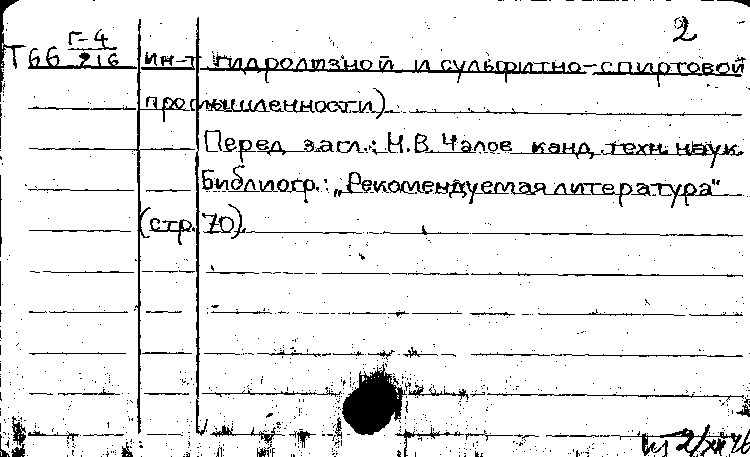 2
Т66 Г-4/216 ин-т гидролизной и сульфитно-спиртовой
промышленности).
Перед загл.: Н.В. Чалов канд. техн. наук.
Библиогр.: „Рекомендуемая литература"
(стр. 70).